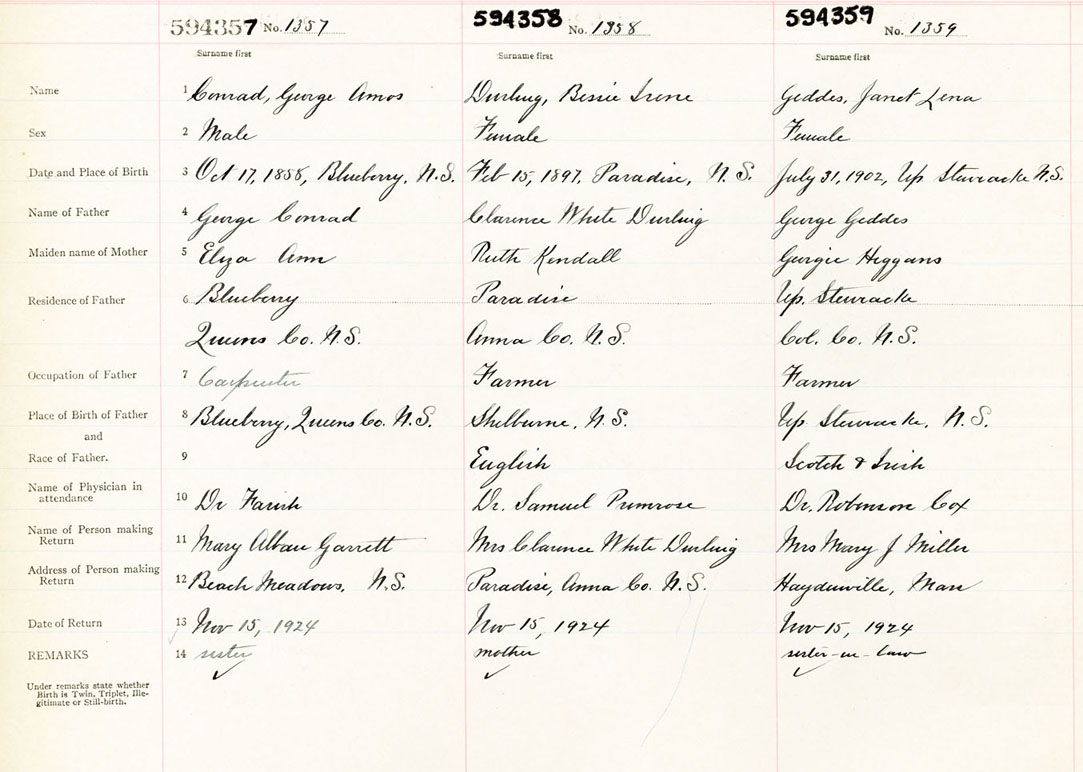 594357 No. 1357 594358 No. 1358 594359 No. 1359
Surname first Surname first Surname first
Name 1 Conrad, George Amos Durling, Bessie Irene Geddes, Janet Lena
Sex 2 Male Female Female
Date and Place of Birth 3 Oct 17, 1858, Blueberry, N.S. Feb 15, 1897, Paradise, N.S. July 31, 1902, Up Stewiacke N.S.
Name of Father 4 George Conrad Clarence White Durling George Geddes
Maiden name of Mother 5 Eliza Ann Ruth Kendall Georgie Higgans
Residence of Father 6 Blueberry Paradise Up. Stewiacke
Queens Co. N.S. Anna Co. N.S. Col. Co. N.S.
Occupation of Father 7 Carpenter Farmer Farmer
Place of Birth of Father 8 Blueberry, Queens Co. N.S. Shelburne, N.S. Up. Stewiacke, N.S.
and
Race of Father. 9 English Scotch & Irish
Name of Physician in
attendance 10 Dr Farish Dr. Samuel Primrose Dr. Robinson Cox
Name of Person making
Return 11 Mary Alban Garrett Mrs Clarence White Durling Mrs Mary J Miller
Address of Person making
Return 12 Beach Meadows, N.S. Paradise, Anna Co. N.S. Haydenville, Mass
Date of Return 13 Nov 15, 1924 Nov 15, 1924 Nov 15, 1924
REMARKS 14 sister mother sister-in-law
Under remarks state whether
Birth is Twin, Triplet, Ille-
gitimate or Still-birth.